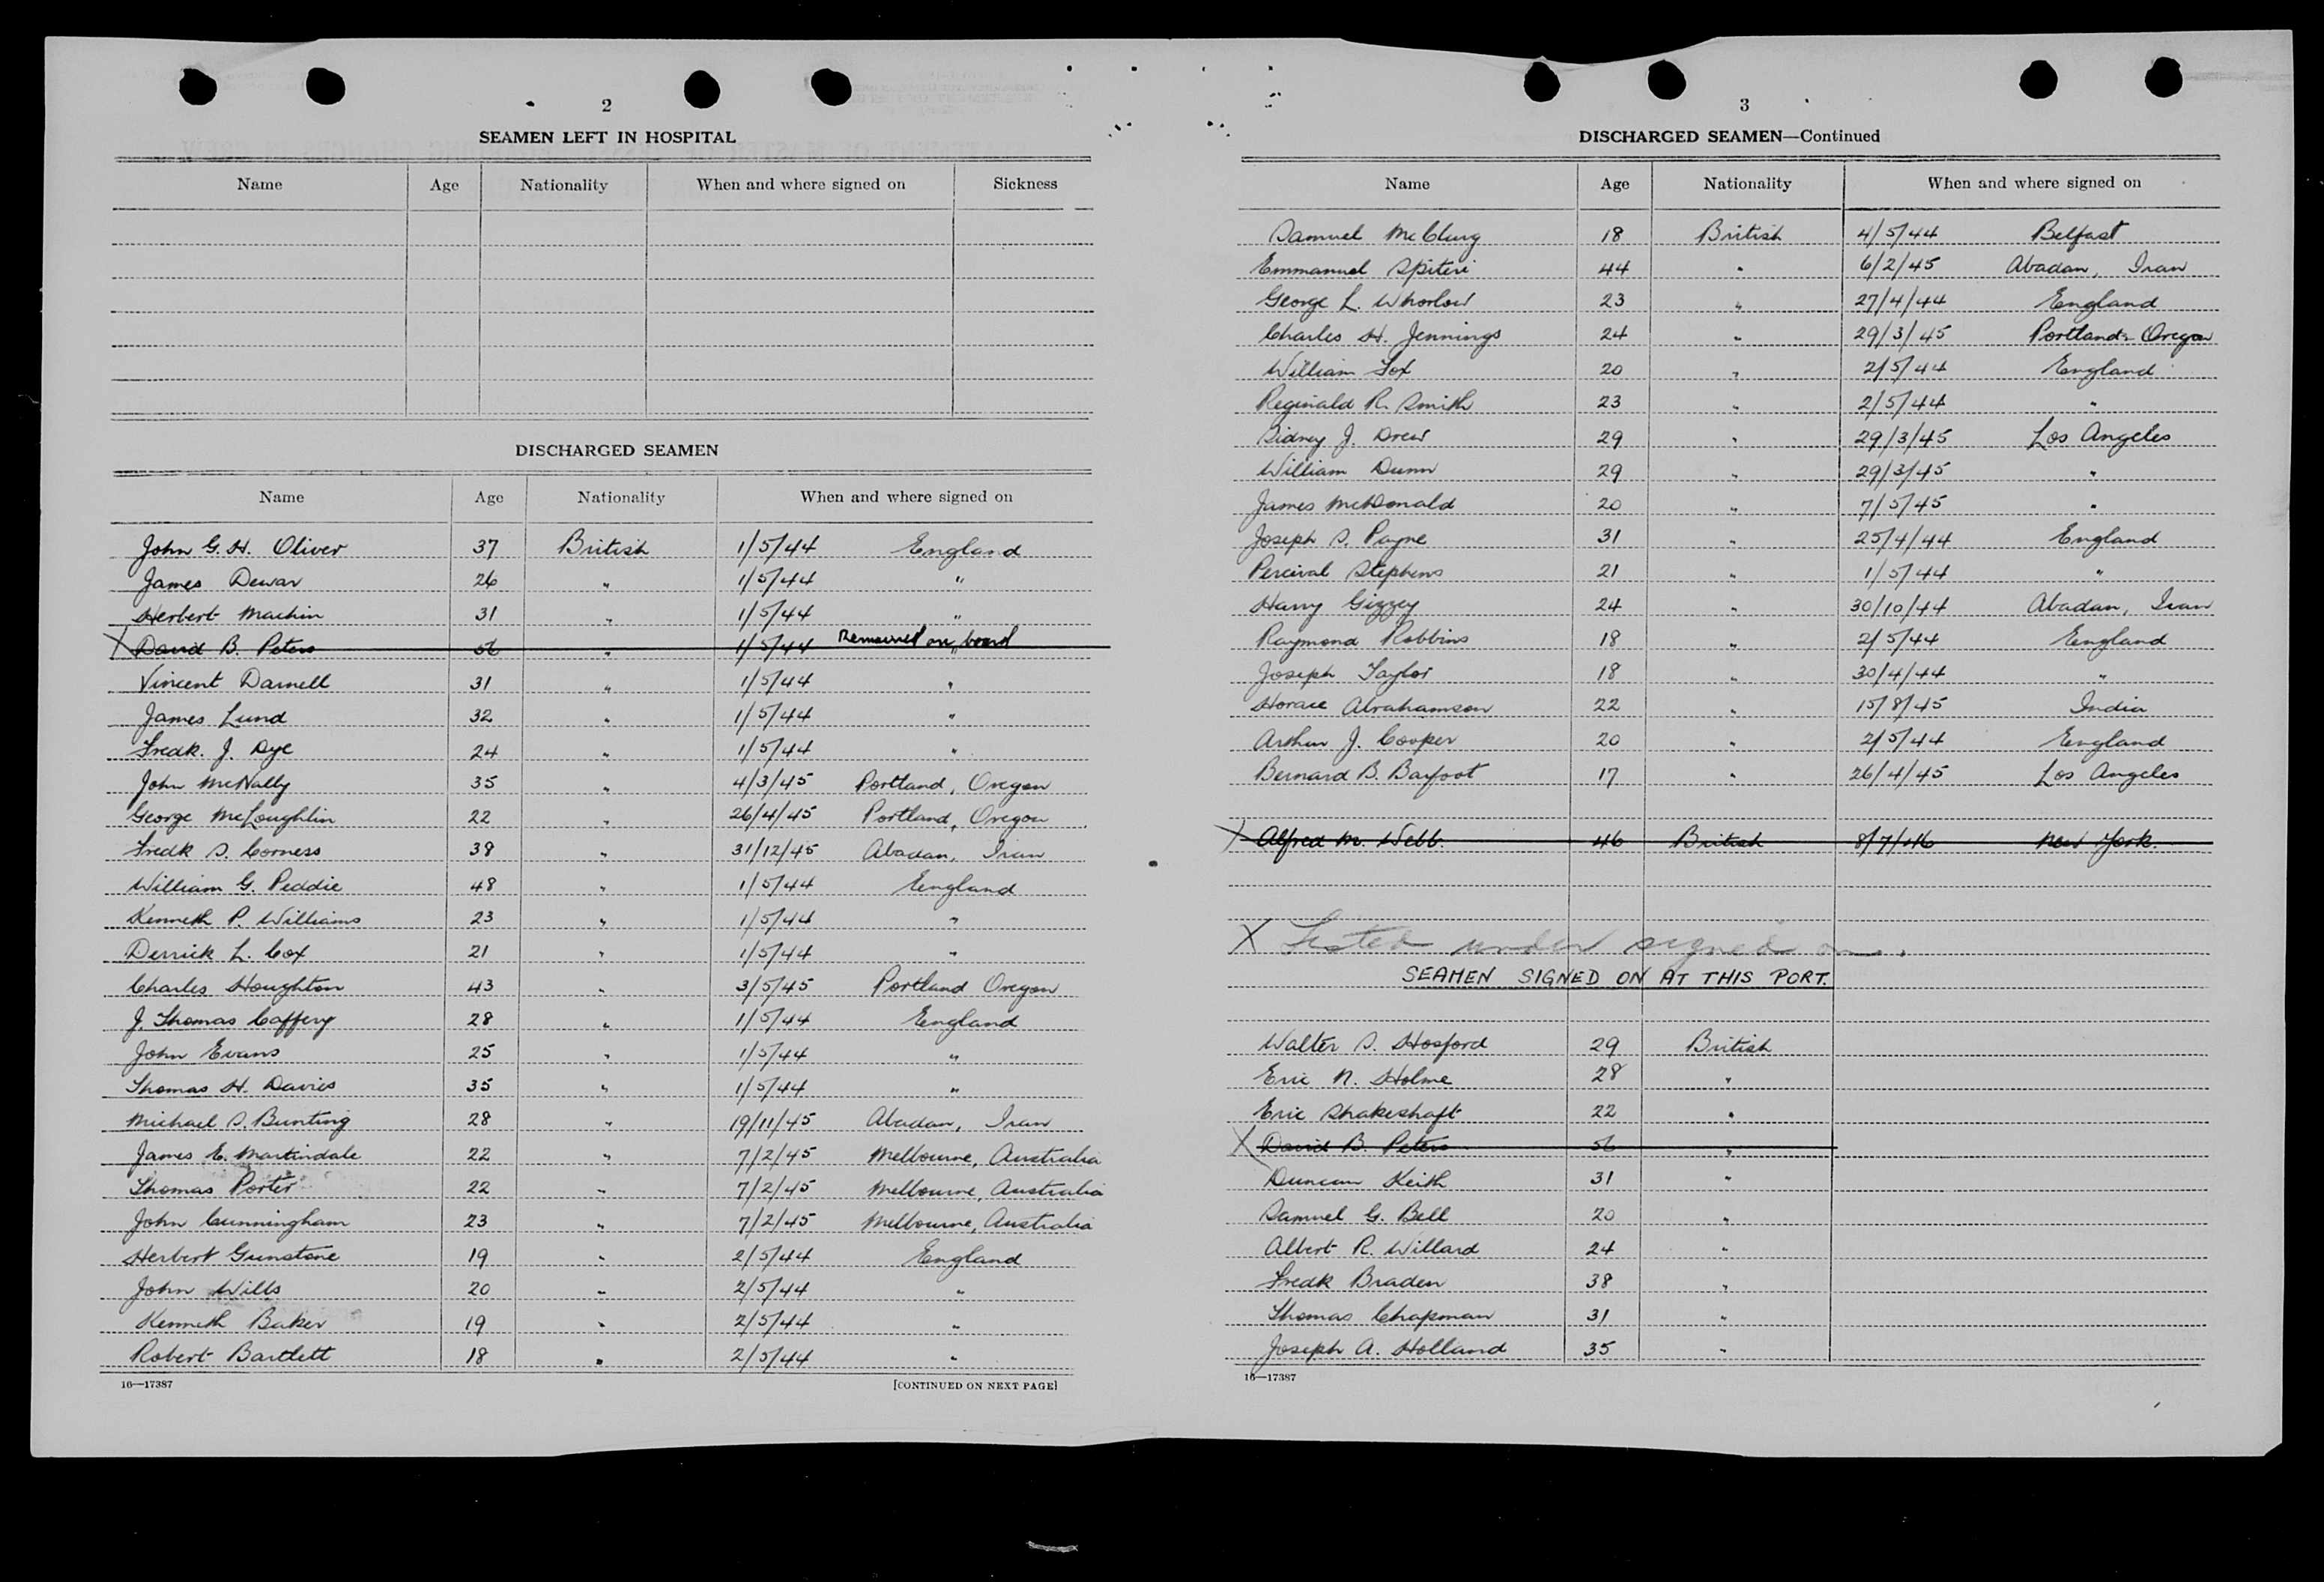 2
SEAMEN LEFT IN HOSPITAL
Name Age Nationality When and where signed on Sickness
DISCHARGED SEAMEN
Name Age Nationality When and where signed on
John G. H. Oliver 37 British 1/5/44 England
James Dewar 26 " 1/5/44 "
Herbert Machin 31 " 1/5/44 "
X David B. Peters 56 " 1/5/44 Remained on board "
Vincent Darnell 31 " 1/5/44 "
James Lund 32 " 1/5/44 "
Fredk. J. Dye 24 " 1/5/44 "
John McNally 35 " 4/3/45 Portland, Oregon
George McLoughlin 22 " 26/4/45 Portland, Oregon
Fredk S. Corness 38 " 31/12/45 Abadan, Iran
William G. Peddie 48 " 1/5/44 England
Kenneth P. Williams 23 " 1/5/44 "
Derrick L. Cox 21 " 1/5/44 "
Charles Houghton 43 " 3/5/45 Portland Oregon
J. Thomas Caffery 28 " 1/5/44 England
John Evans 25 " 1/5/44 "
Thomas H. Davies 35 " 1/5/44 "
Michael S. Bunting 28 " 19/11/45 Abadan, Iran
James E. Martindale 22 " 7/2/45 Melbourne, Australia
Thomas Porter 22 " 7/2/45 Melbourne, Australia
John Cunningham 23 " 7/2/45 Melbourne, Australia
Herbert Gunstone 19 " 2/5/44 England
John Wills 20 " 2/5/44 "
Kenneth Baker 19 " 2/5/44 "
Robert Bartlett 18 " 2/5/44 "
16—17387 [CONTINUED ON NEXT PAGE]
3
DISCHARGED SEAMEN—Continued
Name Age Nationality When and where signed on
Samuel McClurg 18 British 4/5/44 Belfast
Emmanuel Spiteri 44 " 6/2/45 Abadan, Iran
George L. Whorlow 23 " 27/4/44 England
Charles H. Jennings 24 " 29/3/45 Portland - Oregon
William Fox 20 " 2/5/44 England
Reginald R. Smith 23 " 2/5/44 "
Sidney J. Drew 29 " 29/3/45 Los Angeles
William Dunn 29 " 29/3/45 "
James McDonald 20 " 7/5/45 "
Joseph S. Payne 31 " 25/4/44 England
Percival Stephens 21 " 1/5/44 "
Harry Gizzey 24 " 30/10/44 Abadan, Iran
Raymond Robbins 18 " 2/5/44 England
Joseph Taylor 18 " 30/4/44 "
Horace Abrahamson 22 " 15/8/45 India
Arthur J. Cooper 20 " 2/5/44 England
Bernard B. Barfoot 17 " 26/4/45 Los Angeles
X Alfred M. Webb. 46 British 8/7/46 New York.
X Listed under signed on.
SEAMEN SIGNED ON AT THIS PORT.
Walter S. Hosford 29 British
Eric N. Holme 28 "
Eric Shakeshaft 22 "
X David B. Peters 56 "
Duncan Keith 31 "
Samuel G. Bell 20 "
Albert R. Willard 24 "
Fredk Braden 38 "
Thomas Chapman 31 "
Joseph A. Holland 35 "
16—17387